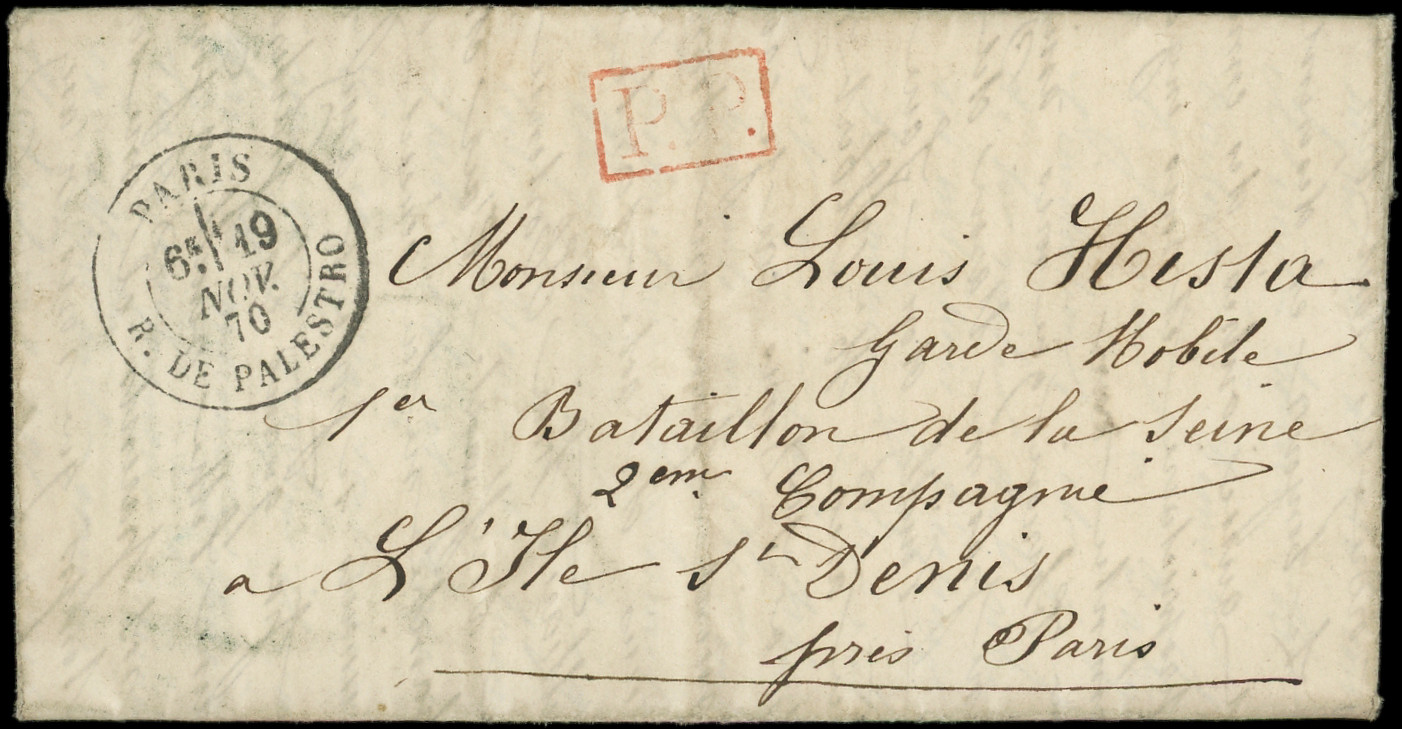 P.P.
PARIS
6E 19
NOV.
70
R. DE PALESTRO
Monsieur Louis Hesla
Garde Mobile
1er Bataillon de la Seine
2em Compagnie
a L'Ile St Denis
près Paris